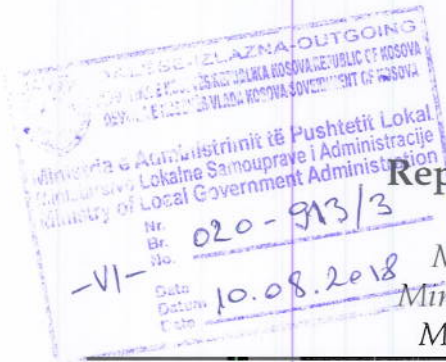 DALËSE-IZLAZNA-OUTGOING
REPUBLIKA KOSOVA REPUBLIC OF KOSOVA
VLADA KOSOVA GOVERNMENT OF KOSOVA
Ministria e Administrimit të Pushtetit Lokal
Lokalne Samouprave i Administracije
Ministry of Local Government Administration
Rep
Nr.
Br. 020-913/3
No.
M
-VI-
Data
Datum 10.08.2018
Date
Min
M